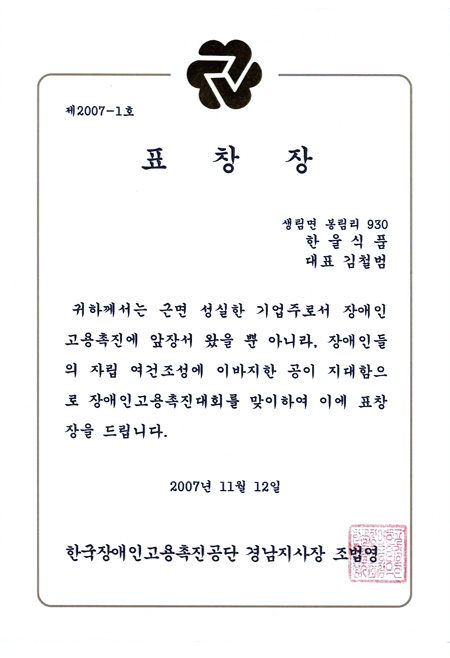 제2007-1호
표 창 장
생림면 봉림리 930
한 울 식 품
대표 김철범
귀하께서는 근면 성실한 기업주로서 장애인
고용촉진에 앞장서 왔을 뿐 아니라, 장애인들
의 자립 여건조성에 이바지한 공이 지대함으
로 장애인고용촉진대회를 맞이하여 이에 표창
장을 드립니다.
2007년 11월 12일
한국장애인고용촉진공단 경남지사장 조범영